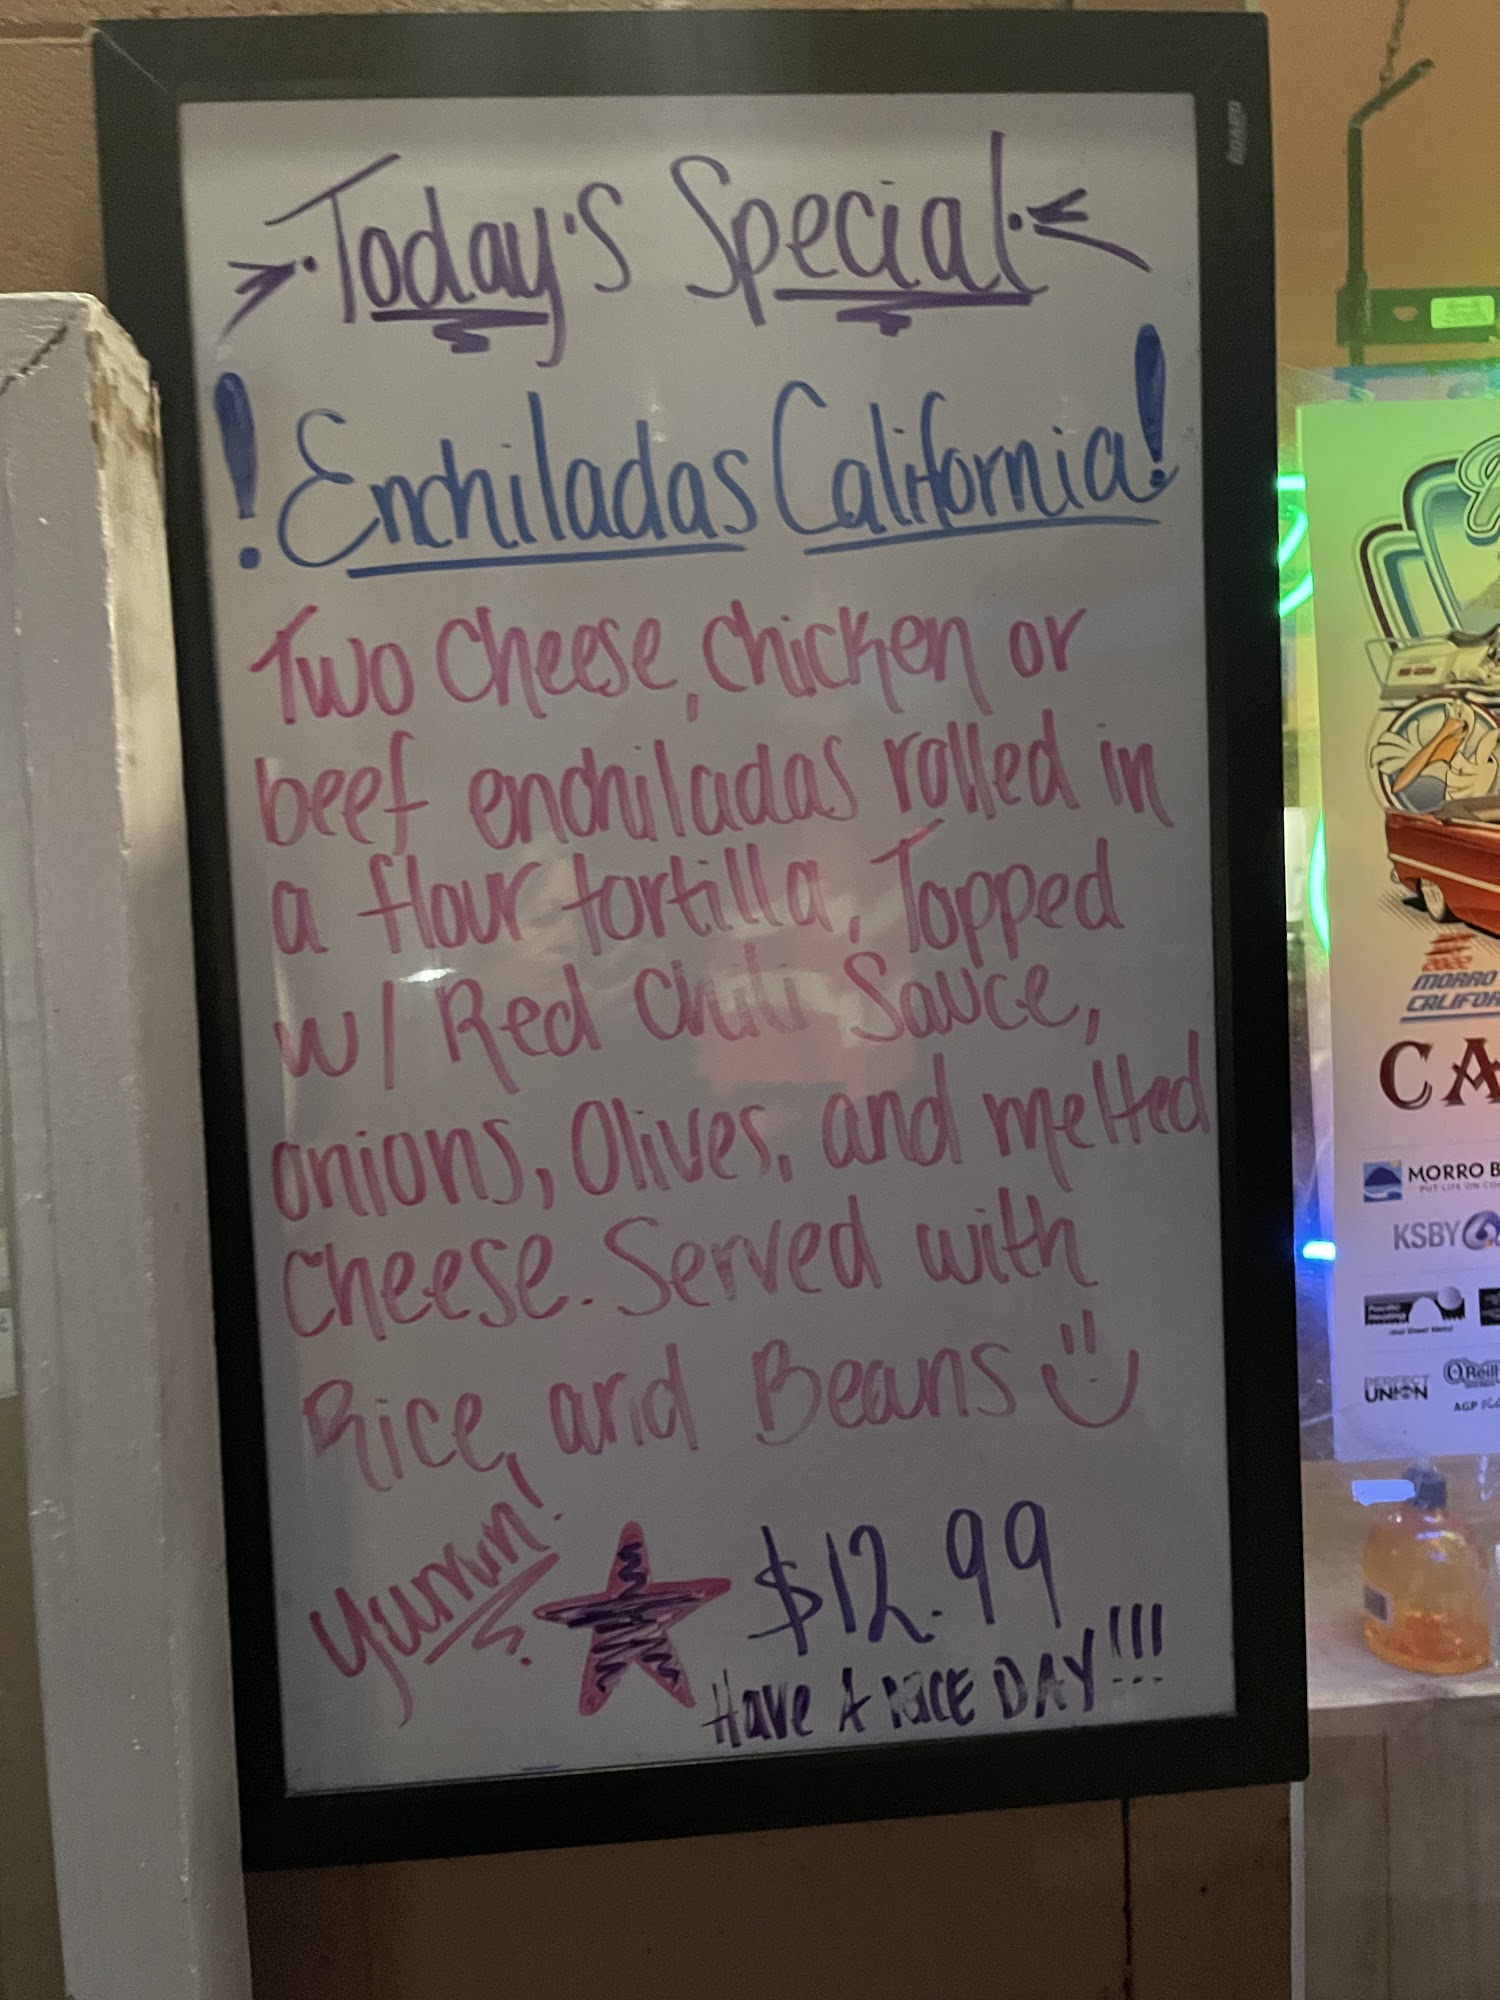 Today's Special
! Enchiladas California!
Two Cheese, chicken or
beef enchiladas rolled in
a flour tortilla, Topped
w/ Red Chili Sauce,
onions, Olives, and melted
Cheese. Served with
Rice, and Beans
Yumm!
$12.99
Have A NICE DAY!!!
BOARD
2022
MORRO
CALIFOR
CA
MORRO B
KSBY 6
PERFECT
UNION
O'Reill
AGP